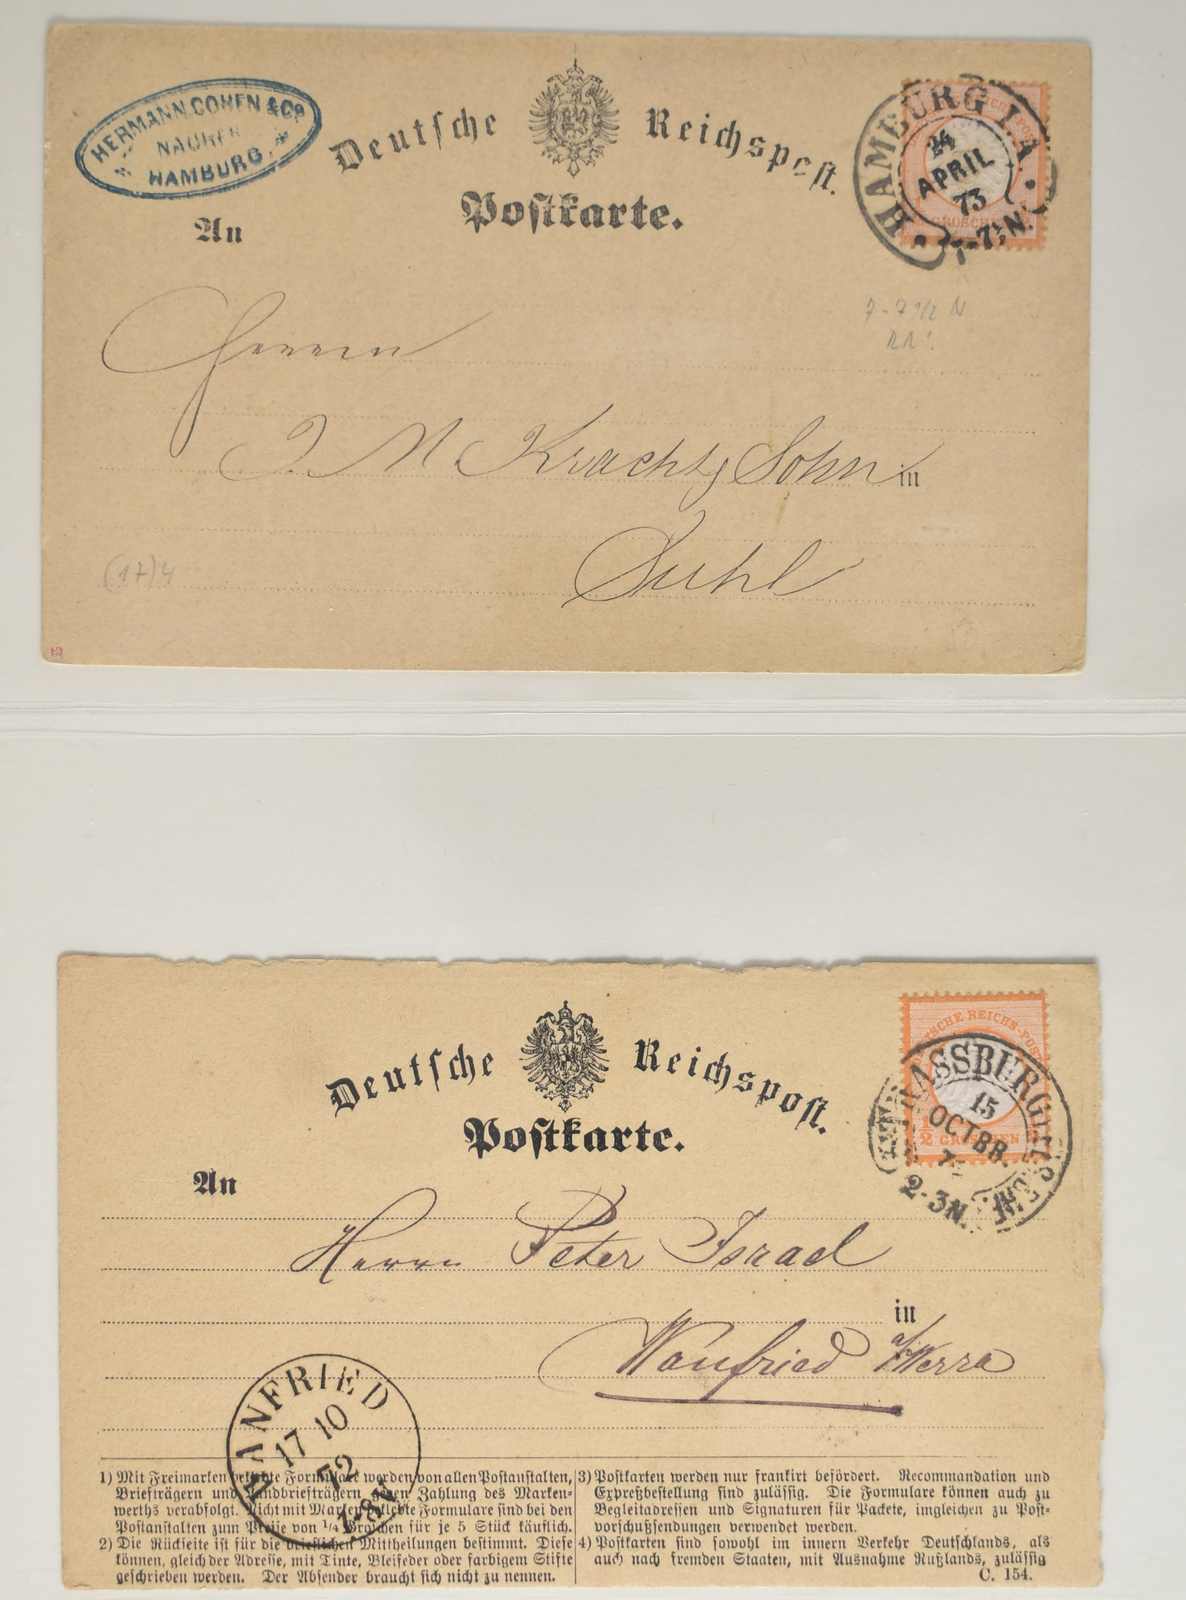 HERMANN COHEN & Co
HAMBURG.
Deutsche Reichspost.
Postkarte.
HAMBURG I.A.
24
APRIL
73
7-7½N.
An
7-7 1/2 N
Herrn
J. M. Kracht & Sohn in
Suhl
(17)4
Deutsche Reichspost.
Postkarte.
DEUTSCHE REICHS-POST
½ GROSCHEN
STRASSBURG
15
OCTBR.
2-3N.
An
Herrn Peter Israel
in
Wanfried a/Werra
WANFRIED
17 10
72
7-8N
1) Mit Freimarken beklebte Formulare werden von allen Postanstalten,
Briefträgern und Landbriefträgern gegen Zahlung des Marken-
werths verabfolgt. Nicht mit Marken beklebte Formulare sind bei den
Postanstalten zum Preise von 1/4 Groschen für je 5 Stück käuflich.
2) Die Rückseite ist für die brieflichen Mittheilungen bestimmt. Diese
können, gleich der Adresse, mit Tinte, Bleifeder oder farbigem Stifte
geschrieben werden. Der Absender braucht sich nicht zu nennen.
3) Postkarten werden nur frankirt befördert. Recommandation und
Expreßbestellung sind zulässig. Die Formulare können auch zu
Begleitadressen und Signaturen für Packete, imgleichen zu Post-
vorschußsendungen verwendet werden.
4) Postkarten sind sowohl im innern Verkehr Deutschlands, als
auch nach fremden Staaten, mit Ausnahme Rußlands, zulässig
C. 154.